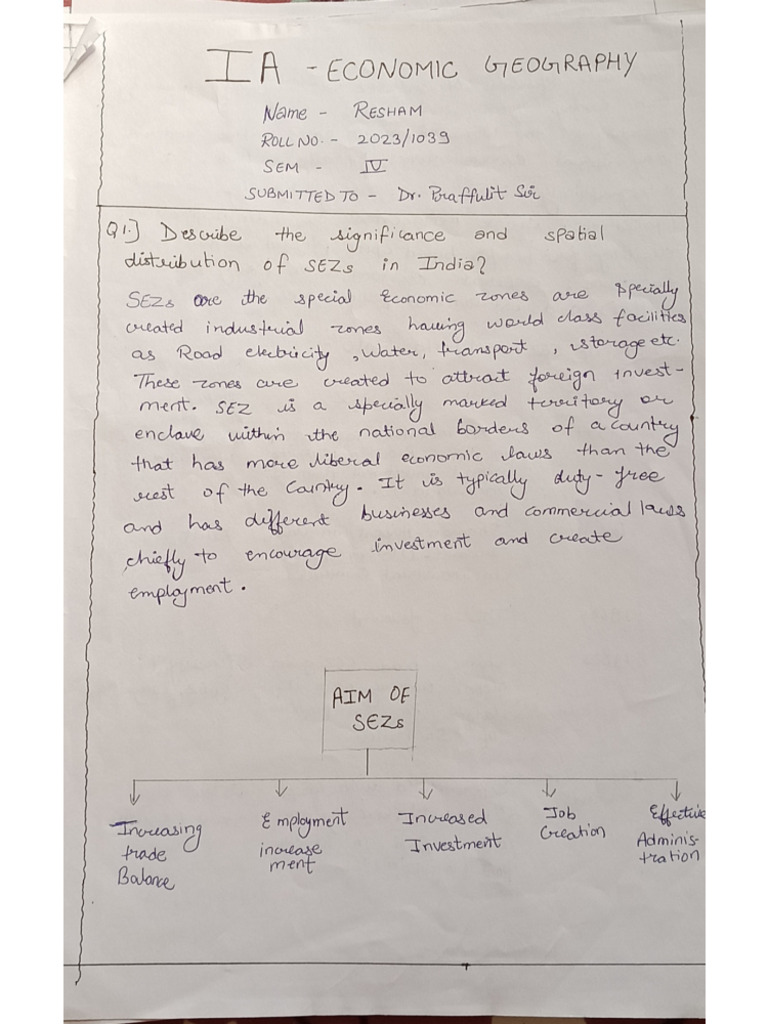 IA - ECONOMIC GEOGRAPHY
Name - RESHAM
ROLL NO. - 2023/1039
SEM - IV
SUBMITTED TO - Dr. Praffulit Sir
Q1.] Describe the significance and spatial
distribution of SEZs in India?
SEZs are the special Economic zones are specially
created industrial zones having world class facilities
as Road electricity, Water, transport, storage etc.
These zones are created to attract foreign invest-
ment. SEZ is a specially marked territory or
enclave within the national borders of a country
that has more liberal economic laws than the
rest of the Country. It is typically duty-free
and has different businesses and commercial laws
chiefly to encourage investment and create
employment.
AIM OF
SEZs
Increasing
trade
Balance
Employment
increase
ment
Increased
Investment
Job
Creation
Effective
Adminis-
tration